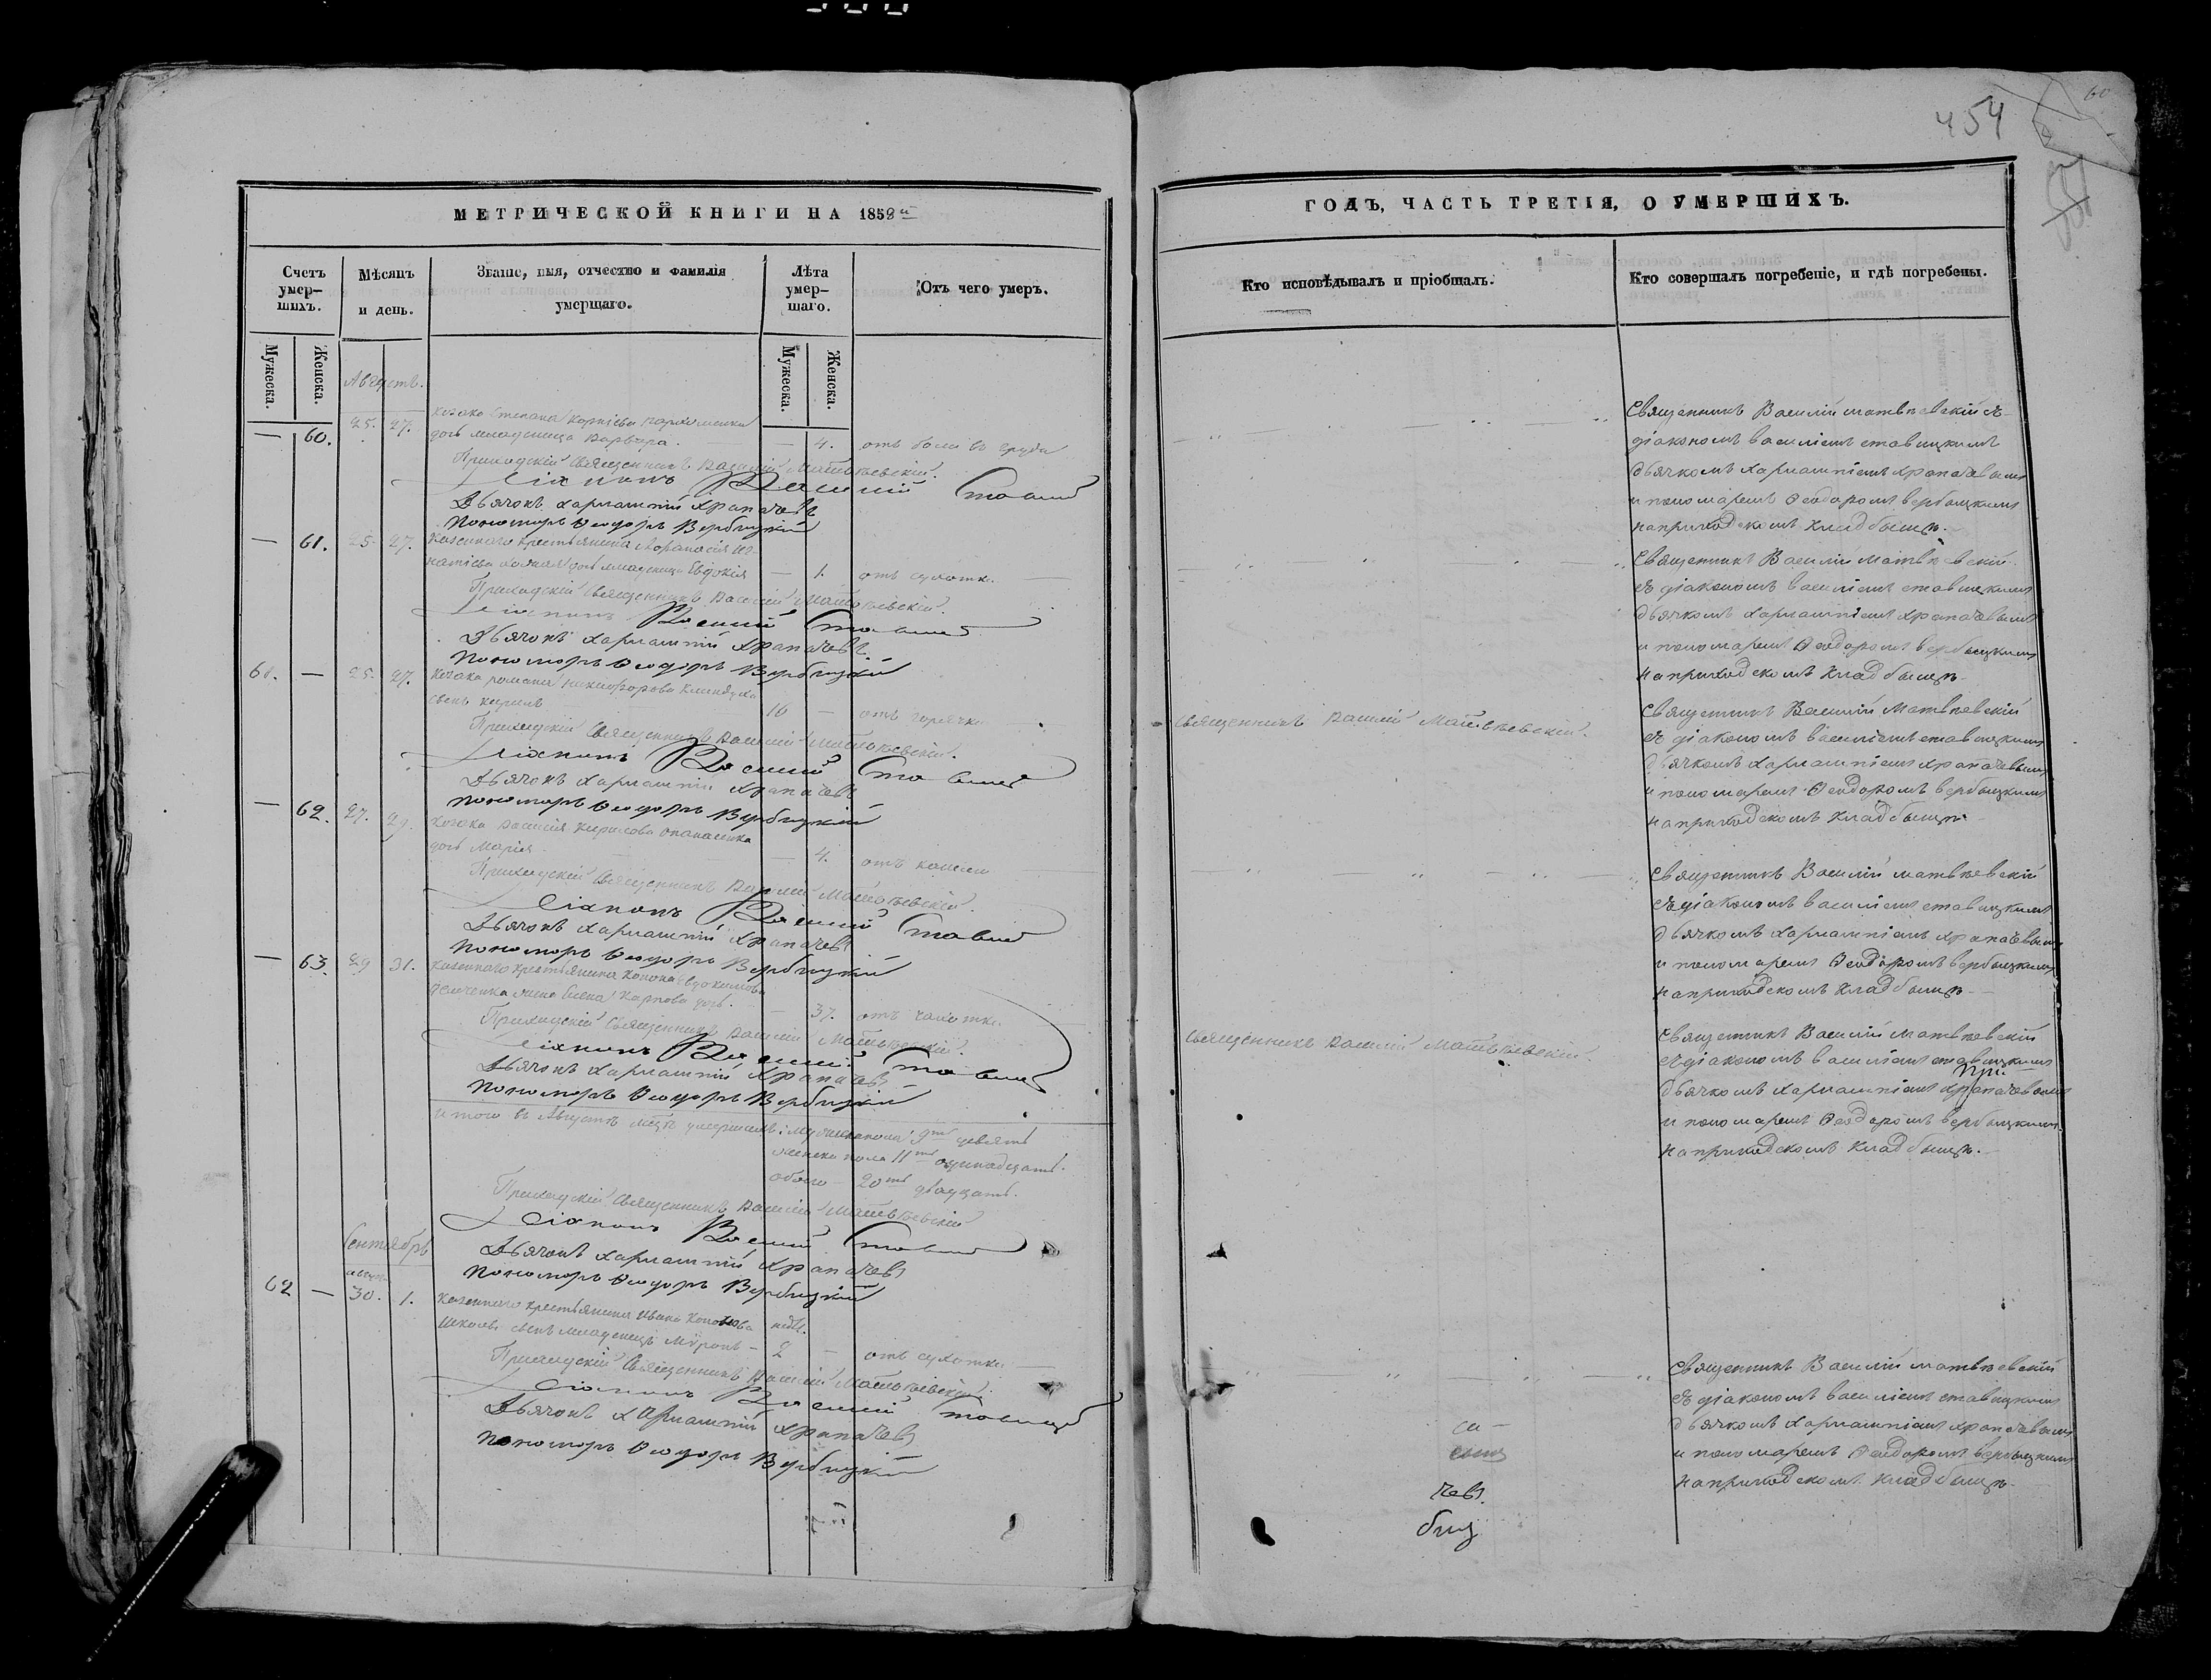 454
60
МЕТРИЧЕСКОЙ КНИГИ НА 1858й
ГОДЪ, ЧАСТЬ ТРЕТІЯ, О УМЕРШИХЪ.
Счетъ умер-
шихъ.
Мѣсяцъ
и день.
Званіе, имя, отчество и фамилія
умершаго.
Лѣта
умер-
шаго.
Отъ чего умеръ.
Кто исповѣдывалъ и пріобщалъ.
Кто совершалъ погребеніе, и гдѣ погребены.
Мужеска.
Женска.
Мужеска.
Женска.
Августъ.
— 60. 25. 27. козака Степана
дочь младеница Варвара. — 4. отъ боли въ груди
Приходскій Священникъ Василій Матвѣевскій.
Діаконъ Василій
Дьячокъ Харлампій Храпачевъ
Пономарь Ѳеодоръ Вербицкій
Священникъ Василій Матвѣевскій съ
діакономъ Василіемъ Ставицкимъ
дьячкомъ Харлампіемъ Храпачевымъ
и пономаремъ Ѳеодоромъ Вербицкимъ
на приходскомъ кладбищѣ.
— 61. 25. 27. Казеннаго крестьянина
дочь младеница Евдокія — 1. отъ сухотки
Приходскій Священникъ Василій Матвѣевскій.
Діаконъ Василій
Дьячокъ Харлампій Храпачевъ
Пономарь Ѳеодоръ Вербицкій
Священникъ Василій Матвѣевскій
съ діакономъ Василіемъ Ставицкимъ
дьячкомъ Харлампіемъ Храпачевымъ
и пономаремъ Ѳеодоромъ Вербицкимъ
на приходскомъ кладбищѣ
61. — 25. 27. Козака Романа Никифорова
сынъ 16 — отъ горячки
Приходскій Священникъ Василій Матвѣевскій.
Діаконъ Василій
Дьячокъ Харлампій Храпачевъ
Пономарь Ѳеодоръ Вербицкій
Священникъ Василій Матвѣевскій.
Священникъ Василій Матвѣевскій
съ діакономъ Василіемъ Ставицкимъ
дьячкомъ Харлампіемъ Храпачевымъ
и пономаремъ Ѳеодоромъ Вербицкимъ
на приходскомъ кладбищѣ
— 62. 27. 29. Козака Василія Кирилова Опанасенка
дочь Марія — 4. отъ кашлю
Приходскій Священникъ Василій Матвѣевскій.
Діаконъ Василій
Дьячокъ Харлампій Храпачевъ
Пономарь Ѳеодоръ Вербицкій
Священникъ Василій Матвѣевскій
съ діакономъ Василіемъ Ставицкимъ
дьячкомъ Харлампіемъ Храпачевымъ
и пономаремъ Ѳеодоромъ Вербицкимъ
на приходскомъ кладбищѣ
— 63. 29 31. Казеннаго крестьянина Конона Евдокимова
жена Елена Карпова дочь. — 37. отъ чахотки
Приходскій Священникъ Василій Матвѣевскій.
Діаконъ Василій
Дьячокъ Харлампій Храпачевъ
Пономарь Ѳеодоръ Вербицкій
Священникъ Василій Матвѣевскій.
Священникъ Василій Матвѣевскій
съ діакономъ Василіемъ Ставицкимъ
дьячкомъ Харлампіемъ Храпачевымъ
и пономаремъ Ѳеодоромъ Вербицкимъ
на приходскомъ кладбищѣ.
Итого въ Августѣ мцѣ умершихъ: мужеска пола 9ть девять
женска пола 11ть одинадцать.
обоего 20ть двадцать.
Приходскій Священникъ Василій Матвѣевскій
Діаконъ Василій
Дьячокъ Харлампій Храпачевъ
Пономарь Ѳеодоръ Вербицкій
Сентябрь
62 — 30. 1. Казеннаго крестьянина Ивана недѣл.
сынъ младенецъ Мѵронъ — 2 — отъ сухотки
Приходскій Священникъ Василій Матвѣевскій.
Діаконъ Василій
Дьячокъ Харлампій Храпачевъ
Пономарь Ѳеодоръ Вербицкій
Священникъ Василій Матвѣевскій
съ діакономъ Василіемъ Ставицкимъ
дьячкомъ Харлампіемъ Храпачевымъ
и пономаремъ Ѳеодоромъ Вербицкимъ
на приходскомъ кладбищѣ
чевъ.
биц